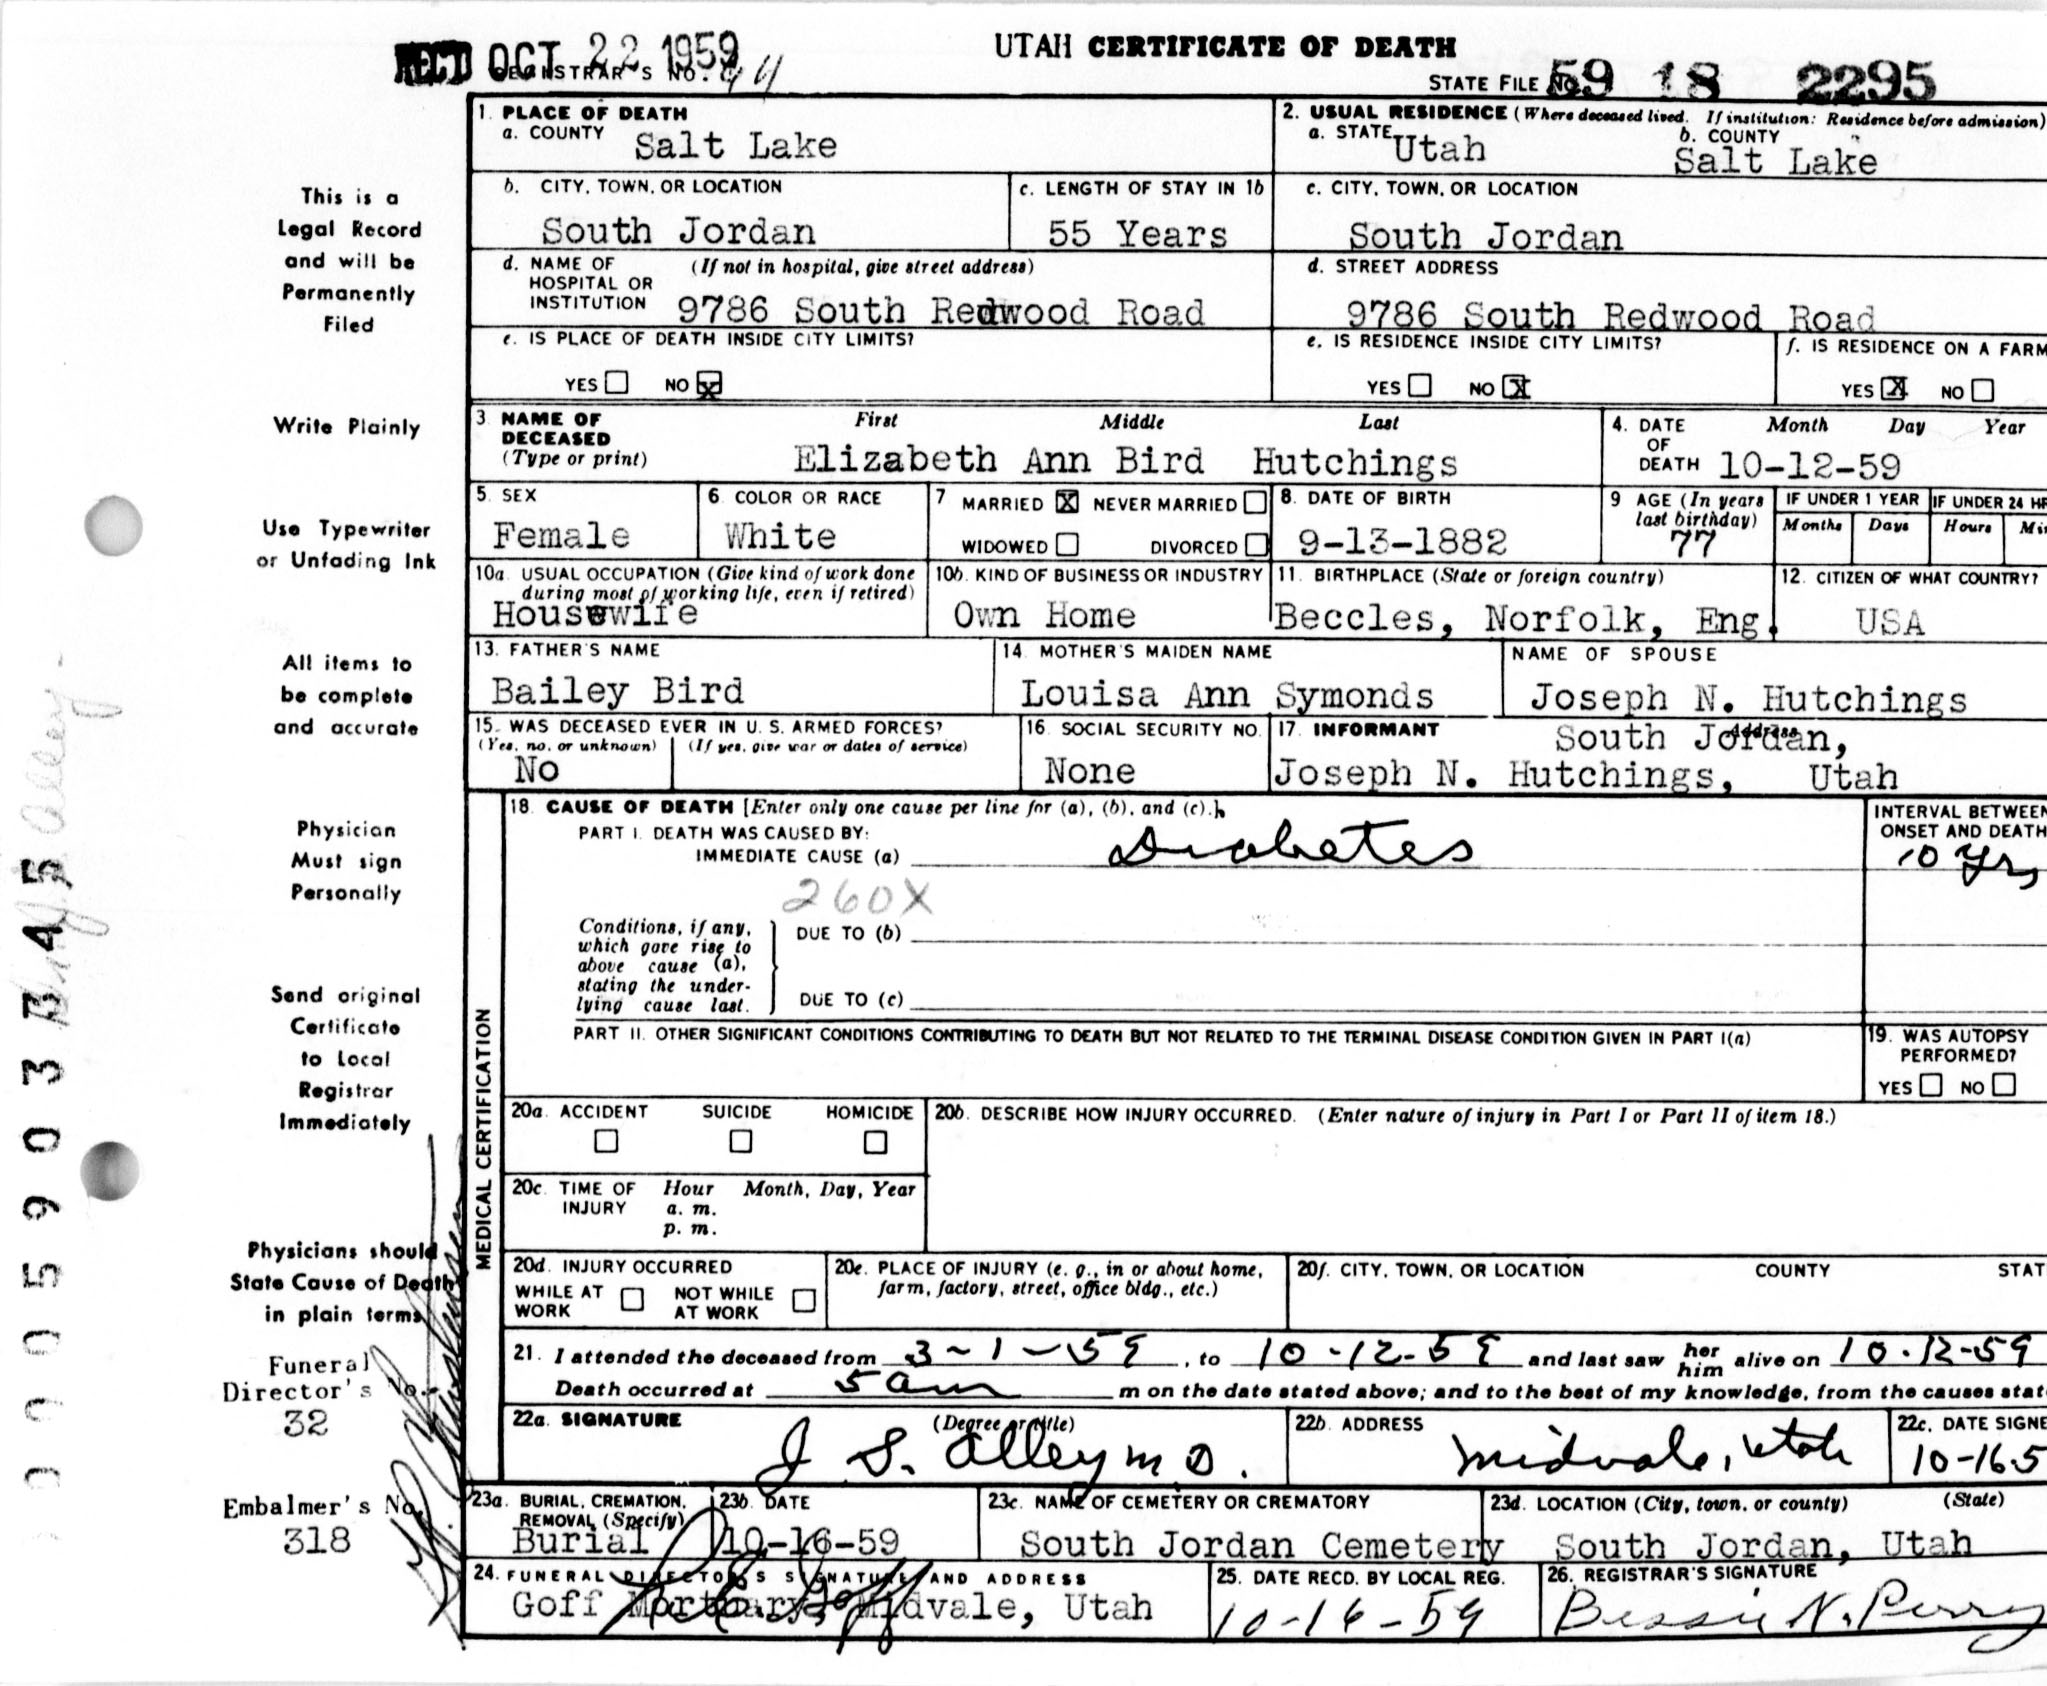 UTAH CERTIFICATE OF DEATH
REC'D OCT 22 1959
REGISTRAR'S NO.
STATE FILE NO. 59 18 2295
This is a
Legal Record
and will be
Permanently
Filed
Write Plainly
Use Typewriter
or Unfading Ink
All items to
be complete
and accurate
Physician
Must sign
Personally
Send original
Certificate
to Local
Registrar
Immediately
Physicians should
State Cause of Death
in plain terms
Funeral
Director's No.
32
Embalmer's No.
318
1. PLACE OF DEATH
a. COUNTY Salt Lake
2. USUAL RESIDENCE (Where deceased lived. If institution: Residence before admission)
a. STATE Utah b. COUNTY Salt Lake
b. CITY, TOWN, OR LOCATION
South Jordan
c. LENGTH OF STAY IN 1b
55 Years
c. CITY, TOWN, OR LOCATION
South Jordan
d. NAME OF (If not in hospital, give street address)
HOSPITAL OR
INSTITUTION 9786 South Redwood Road
d. STREET ADDRESS
9786 South Redwood Road
e. IS PLACE OF DEATH INSIDE CITY LIMITS?
YES NO X
e. IS RESIDENCE INSIDE CITY LIMITS?
YES NO X
f. IS RESIDENCE ON A FARM
YES X NO
3. NAME OF First Middle Last
DECEASED
(Type or print) Elizabeth Ann Bird Hutchings
4. DATE Month Day Year
OF
DEATH 10-12-59
5. SEX
Female
6. COLOR OR RACE
White
7 MARRIED X NEVER MARRIED
WIDOWED DIVORCED
8. DATE OF BIRTH
9-13-1882
9 AGE (In years
last birthday)
77
IF UNDER 1 YEAR IF UNDER 24 HR
Months Days Hours Min
10a. USUAL OCCUPATION (Give kind of work done
during most of working life, even if retired)
Housewife
10b. KIND OF BUSINESS OR INDUSTRY
Own Home
11. BIRTHPLACE (State or foreign country)
Beccles, Norfolk, Eng.
12. CITIZEN OF WHAT COUNTRY?
USA
13. FATHER'S NAME
Bailey Bird
14. MOTHER'S MAIDEN NAME
Louisa Ann Symonds
NAME OF SPOUSE
Joseph N. Hutchings
15. WAS DECEASED EVER IN U. S. ARMED FORCES?
(Yes, no, or unknown) (If yes, give war or dates of service)
No
16. SOCIAL SECURITY NO.
None
17. INFORMANT Address
South Jordan,
Joseph N. Hutchings, Utah
MEDICAL CERTIFICATION
18. CAUSE OF DEATH [Enter only one cause per line for (a), (b), and (c).]
PART I. DEATH WAS CAUSED BY:
IMMEDIATE CAUSE (a) Diabetes
INTERVAL BETWEEN
ONSET AND DEATH
10 yrs
260X
Conditions, if any,
which gave rise to
above cause (a),
stating the under-
lying cause last.
DUE TO (b)
DUE TO (c)
PART II. OTHER SIGNIFICANT CONDITIONS CONTRIBUTING TO DEATH BUT NOT RELATED TO THE TERMINAL DISEASE CONDITION GIVEN IN PART I(a)
19. WAS AUTOPSY
PERFORMED?
YES NO
20a. ACCIDENT SUICIDE HOMICIDE
20b. DESCRIBE HOW INJURY OCCURRED. (Enter nature of injury in Part I or Part II of item 18.)
20c. TIME OF Hour Month, Day, Year
INJURY a. m.
p. m.
20d. INJURY OCCURRED
WHILE AT NOT WHILE
WORK AT WORK
20e. PLACE OF INJURY (e. g., in or about home,
farm, factory, street, office bldg., etc.)
20f. CITY, TOWN, OR LOCATION COUNTY STAT
21. I attended the deceased from 3-1-59, to 10-12-59 and last saw her him alive on 10-12-59
Death occurred at 5 am m on the date stated above; and to the best of my knowledge, from the causes stat
22a. SIGNATURE (Degree or title)
J S. Alley M D.
22b. ADDRESS
Midvale, Utah
22c. DATE SIGNE
10-16-5
23a. BURIAL, CREMATION,
REMOVAL (Specify)
Burial
23b. DATE
10-16-59
23c. NAME OF CEMETERY OR CREMATORY
South Jordan Cemetery
23d. LOCATION (City, town, or county) (State)
South Jordan, Utah
24. FUNERAL DIRECTOR'S SIGNATURE AND ADDRESS
Goff Mortuary, Midvale, Utah
25. DATE RECD. BY LOCAL REG.
10-16-59
26. REGISTRAR'S SIGNATURE
Bessie N. Perry